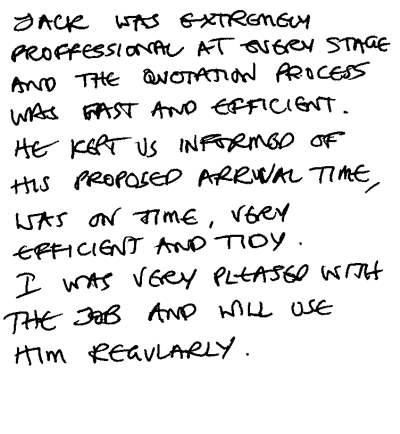 JACK WAS EXTREMELY
PROFFESSIONAL AT EVERY STAGE
AND THE QUOTATION PROCESS
WAS FAST AND EFFICIENT.
HE KEPT US INFORMED OF
HIS PROPOSED ARRIVAL TIME,
WAS ON TIME, VERY
EFFICIENT AND TIDY.
I WAS VERY PLEASED WITH
THE JOB AND WILL USE
HIM REGULARLY.